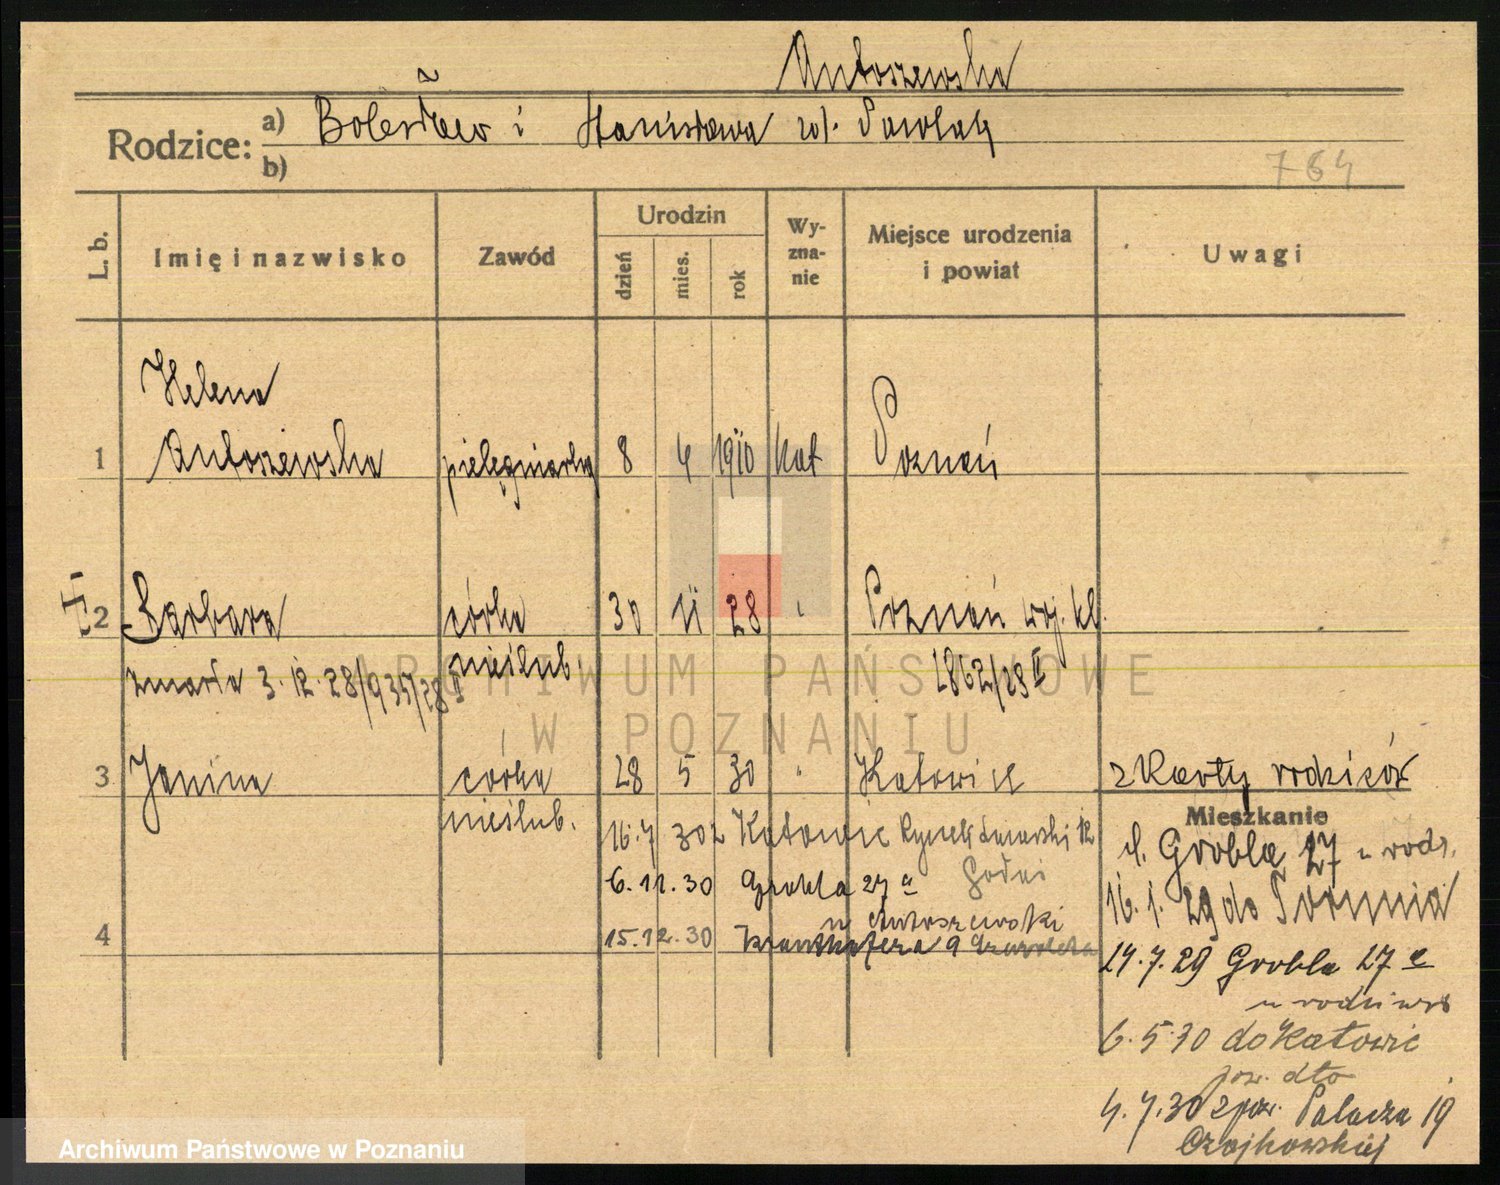 Antoszewska
Rodzice: a) Bolesław i Stanisława roż. Pawlak
b)
764
L. b.
Imię i nazwisko
Zawód
Urodzin
dzień
mies.
rok
Wy-
zna-
nie
Miejsce urodzenia
i powiat
Uwagi
Helena
1 Antoszewska pielęgniarka 8 4 1910 kat Poznań
2 Barbara córka 30 11 28 " Poznań woj. kl.
zmarła 3.12.28/935/28 II nieślub. 1862/28 II
3 Janina córka 28 5 30 " Katowice z karty rodziców
nieślub.
Mieszkanie
16.7 30 z Katowic Rynek Łazarski 12
Grobla 27 u rodz.
6.11.30 Grobla 27 a
16.1.29 do Torunia
u Antoszewski
4 15.12.30 9
24.7.29 Grobla 27 a
u rodziców
6.5.30 do Katowic
pow. dto
4.7.30 z pow. Palacza 19
Czajkowskiej
ARCHIWUM PAŃSTWOWE
W POZNANIU
Archiwum Państwowe w Poznaniu